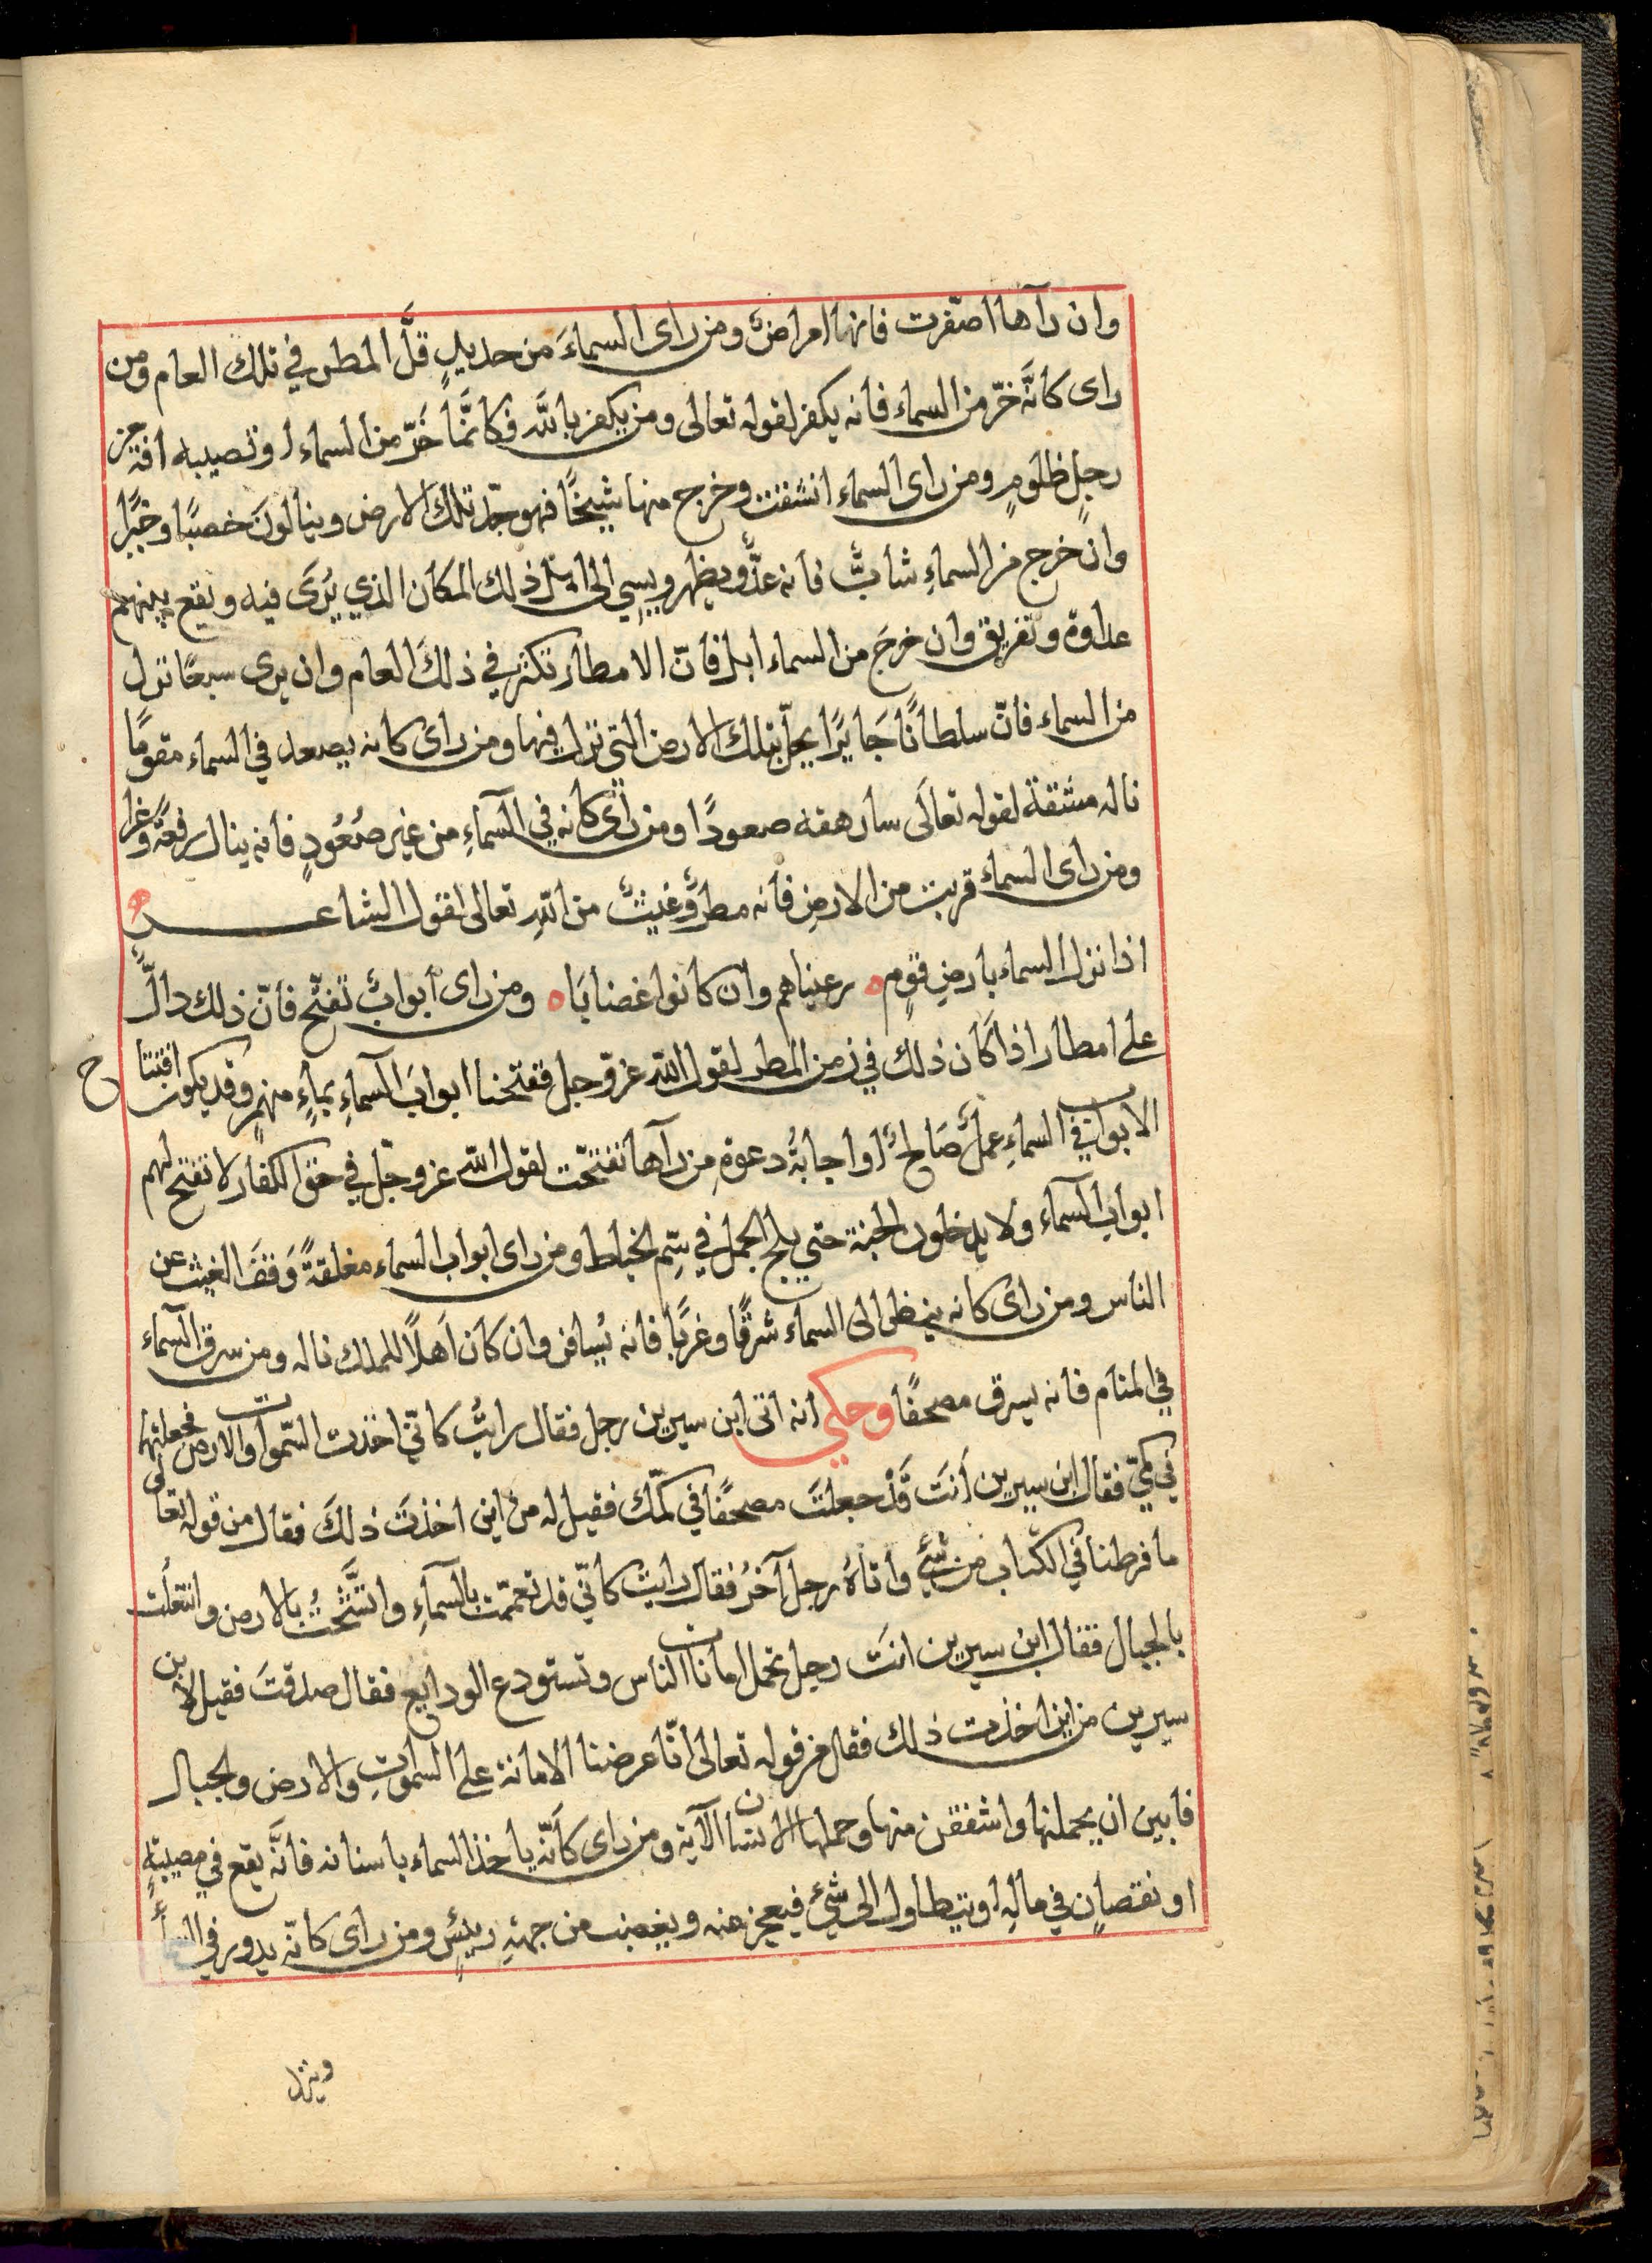 وان رآها اصّفرت فانها امراضٌ ومن راى السماءَ من حديدٍ قلَّ المطر في تلك العام ومن
راى كانَّه خرّ من السماء فانه يكفر لقوله تعالى ومن يكفر بالله فكانَّما خَرّ من السماء او تصيبه افة من
رجلٍ ظلومٍ ومن راى السماء انشقت وخرج منها شيخًا فهو جدّ تلك الارض وينالونَ خصبًا وخيرًا
وان خرج من السماءِ شابٌّ فانه عدُّو يظهر ويسِي الى اهل ذلك المكان الذي يُرَى فيه ويقع بينهم
عداوة وتفريق وان خرجَ من السماء ابل فانّ الامطار تكثر في ذلكَ العام وان يرى سبعًا نزل
من السماء فانّ سلطانًا جَايرًا يحلّ بتلك الارض التي نزل فيها ومن راى كانه يصعد في السماء مقومًا
ناله مشقة لقوله تعالَى سارهقه صعودًا ومن رأى كانه في السّماءِ من غير صُعُودٍ فانه ينال رفعةً وعزا
ومن راى السماء قربت من الارضِ فانه مطرٌ وغيثٌ من اللهِ تعالى لقول الشاعر
اذا نزل السماء بارضِ قومٍ ه رعيناهم وان كانوا غضابَا ه ومن راى أبوابٌ تفتّح فانّ ذلك دالٌّ
على امطار اذا كان ذلك في زمن المطر لقول اللهِ عزّ وجل ففتحنا ابوابَ السّماءِ بماءٍ منهمرٍ وقد يكون افتتاح
الابواب في السماءِ عملٌ صَالحٌ او اجابةُ دعوةِ من رآها تفتّحت لقول الله عز وجلّ في حق الكفار لا تفتح لهم
ابواب السّماء ولا يدخلون الجنة حتى يلج الجمل في سِّم الخياط ومن راى ابواب السماء مغلقةً وَقفَ الغيث عن
الناس ومن راى كانه ينظر الى السماء شرقًا وغربًا فانه يُسافر وان كان اَهلاً للملك ناله ومن سرق السّماء
في المنام فانه يسرق مصحفًا وحكي انه اتى ابن سيرين رجل فقال رايتُ كانّي اخذت السّموات والارض فجعلتها
في كمّي فقال ابن سيرين أنتَ قَدْ جعلتَ مصحفًا في كمّك فقيل له منْ اين اخذتَ ذلكَ فقال من قوله تعالى
ما فرطنا في الكتاب من شيْءٍ وأتاهُ رجل آخرُ فقال رايت كانّي قد تعمّمت بالسّماءِ واتشَّحْتُ بالارض وانتعلت
بالجبال فقال ابن سيرين انتَ رجل تحمل امانات الناس وتستودع الودايع فقال صدقتَ فقيل لابن
سيرين من اين اخذت ذلك فقال من قوله تعالى انّا عرضنا الامانة على السمٰوتِ والارض والجبال
فابين ان يحملنها واشفقن منها وحملها الانسان الآية ومن راى كانّه ياخذ السماء باسنانه فانَّه يقع في مصيبةٍ
او نقصانٍ في مالِه او يتطاول الى شيْءٍ فيعجز عنه ويغضب من جهةِ رييسٍ ومن راى كانّه يدور في السمأ
وينزل